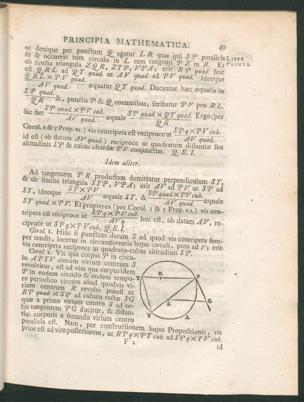 PRINCIPIA MATHEMATICA. 43
ac denique per punctum Q agatur L R quæ ipsi SP parallela LIBER
sit & occurrat tum circulo in L tum tangenti PZ in R. Et PRIMUS.
ob similia triangula ZQR, ZTP, VPA; erit RP quad. hoc
est QRL ad QT quad. ut AV quad. ad PV quad. Ideoque
QRL × PV quad. / AV quad. æquatur QT quad. Ducantur hæc æqualia in
SP quad. / QR &, punctis P & Q coeuntibus, scribatur PV pro RL.
Sic fiet SP quad. × PV cub. / AV quad. æquale SP quad. × QT quad. / QR Ergo (per
Corol. 1 & 5 Prop. VI.) vis centripeta est reciproce ut SPq × PV cub. / AV quad.
id est (ob datum AV quad.) reciproce ut quadratum distantiæ seu
altitudinis SP & cubus chordæ PV conjunctim. Q. E. I.
Idem aliter.
Ad tangentem PR productam demittatur perpendiculum ST,
& ob similia triangula STP, VPA; erit AV ad PV ut SP ad
ST, ideoque SP × PV / AV æquale ST, & SP quad. × PV cub. / AV æquale
ST quad. × PV. Et propterea (per Corol. 3 & 5 Prop. VI.) vis cen-
tripeta est reciproce ut SPq × PV cub. / AV quad. hoc est, ob datam AV, re-
ciproce ut SPq × PV cub. Q. E. I.
Corol. 1. Hinc si punctum datum S ad quod vis centripeta sem-
per tendit, locetur in circumferentia hujus circuli, puta ad V; erit
vis centripeta reciproce ut quadrato-cubus altitudinis SP.
Corol. 2. Vis qua corpus P in circu-
lo APTV circum virium centrum S
revolvitur, est ad vim qua corpus idem
P in eodem circulo & eodem tempo-
re periodico circum aliud quodvis vi-
rium centrum R revolvi potest ut
RP quad. × SP ad cubum rectæ SG
quæ a primo virium centro S ad or-
bis tangentem PG ducitur, & distan-
tiæ corporis a secundo virium centro
parallela est. Nam, per constructionem hujus Propositionis, vis
prior est ad vim posteriorem, ut RPq × PT cub. ad SPq × PV cub.
F 2 id
T R P S G V A